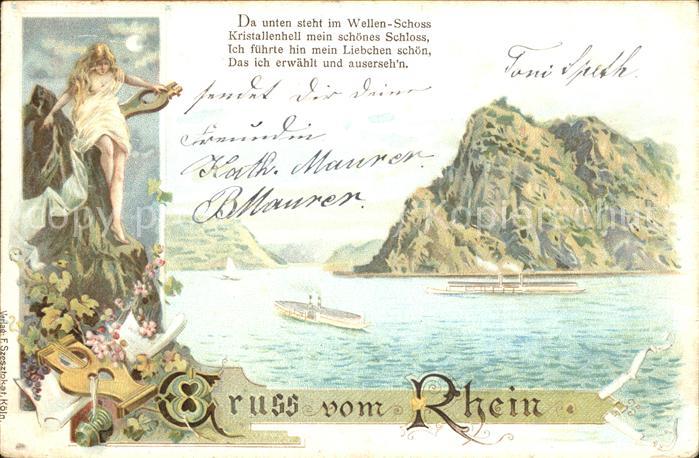 Da unten steht im Wellen-Schoss
Kristallenhell mein schönes Schloss,
Ich führte hin mein Liebchen schön,
Das ich erwählt und auserseh'n.
Toni Speth.
sendet Dir deine
Freundin
Kath. Maurer.
BMaurer.
Gruss vom Rhein
Verlag: F. Szesztokat, Köln.